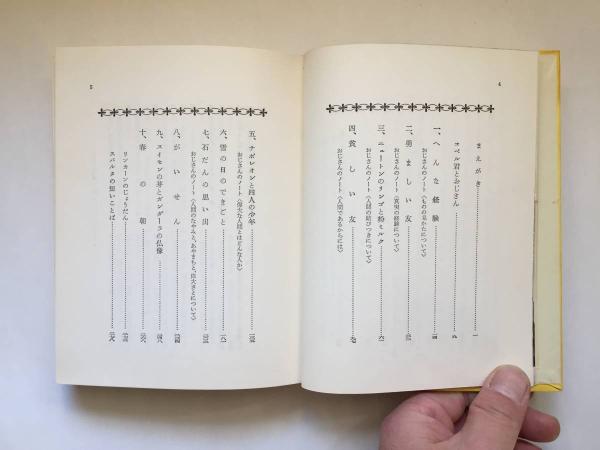 4
まえがき
コペル君とおじさん
一、へんな経験
おじさんのノート(ものの見かたについて)
二、勇ましい友
おじさんのノート(真実の経験について)
三、ニュートンのリンゴと粉ミルク
おじさんのノート(人間の結びつきについて)
四、貧しい友
おじさんのノート(人間であるからには)
5
五、ナポレオンと四人の少年
おじさんのノート(偉大な人間とはどんな人か)
六、雪の日のできごと
七、石だんの思い出
おじさんのノート(人間のなやみと、あやまちと、偉大さとについて)
八、がいせん
九、スイセンの芽とガンダーラの仏像
十、春の朝
リンカーンのじょうだん
スパルタの短いことば